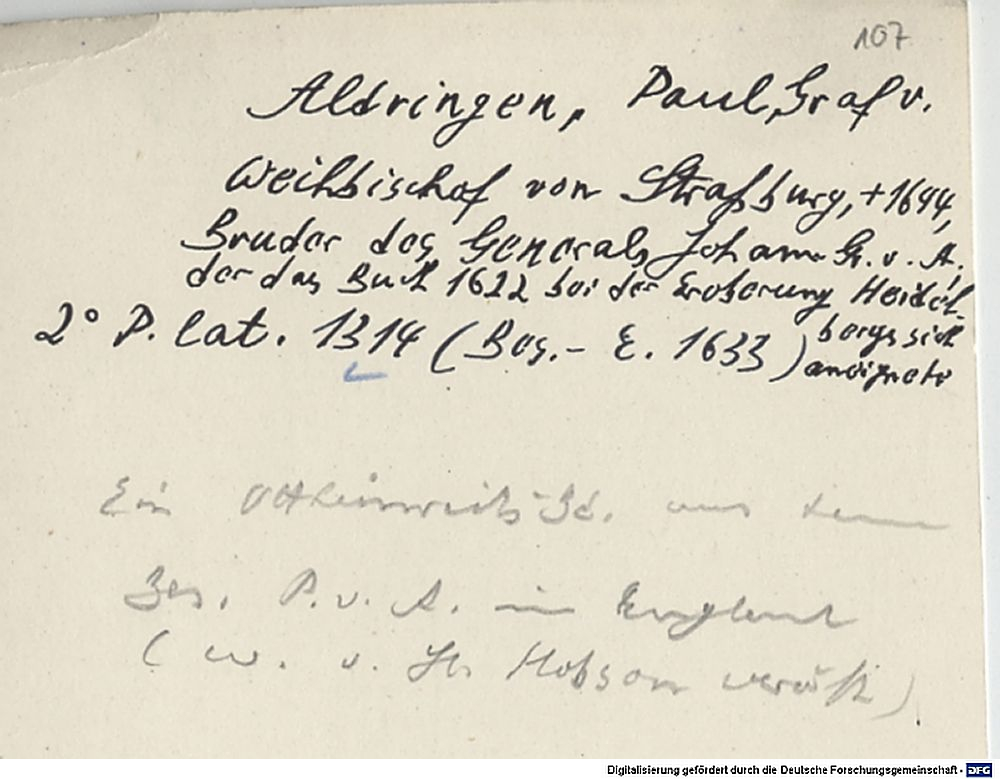 107
Aldringen, Paul, Graf v.
Weihbischof von Straßburg, +1644,
Bruder des Generals Johann G. v. A.,
der das Buch 1622 bei der Eroberung Heidel-
bergs sich
aneignete
2° P. lat. 1314 (Bes. - E. 1633)
Ein Ottheinrich-Bd. aus dem
Bes. P. v. A. in England
(w. v. H. Hobson veröff.)
Digitalisierung gefördert durch die Deutsche Forschungsgemeinschaft - DFG